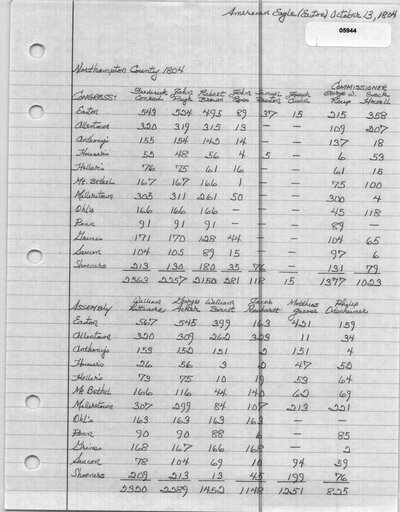 American Eagle (Easton) October 13, 1804
05944
Northampton County 1804
COMMISSIONER
CONGRESS: Frederick Conrad John Pugh Robert Brown John Ross Samuel Preston Joseph George W.
Easton 543 524 495 89 37 15 215 358
Allentown 320 319 315 13 — — 109 207
Anthony's 155 154 142 14 — — 137 18
52 48 56 4 5 — 6 53
Heller's 76 75 61 16 — — 61 15
Mt. Bethel 167 167 166 1 — — 75 100
Millerstown 305 311 261 50 — — 300 4
Ohl's 166 166 166 — — — 45 118
Penn 91 91 91 — — — 89 —
171 170 128 44 — — 104 65
Saucon 104 105 89 15 — — 97 6
213 130 180 35 76 — 131 79
2363 2257 2150 281 118 15 1377 1023
ASSEMBLY William Lattimore George William Jacob Matthias Philip
Easton 567 545 399 163 421 159
Allentown 320 309 262 323 11 34
Anthony's 153 152 151 2 151 4
26 56 3 2 47 52
Heller's 73 75 10 19 53 64
Mt. Bethel 166 116 44 140 62 69
Millerstown 307 299 84 107 213 221
Ohl's 163 163 163 163 — —
Penn 90 90 88 6 — 85
168 167 166 168 — 2
Saucon 78 104 69 10 94 59
209 213 13 45 199 76
2320 2289 1452 1148 1251 825